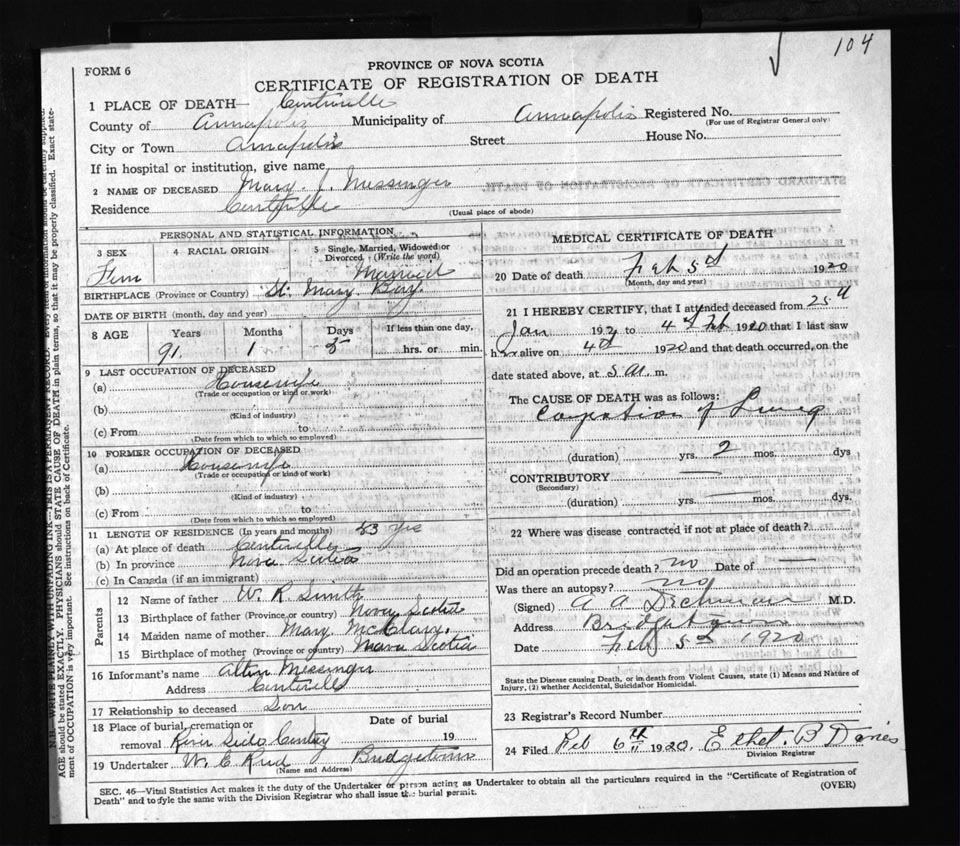 104
PROVINCE OF NOVA SCOTIA
FORM 6
CERTIFICATE OF REGISTRATION OF DEATH
1 PLACE OF DEATH— Centreville
County of Annapolis Municipality of Annapolis Registered No.
(For use of Registrar General only)
City or Town Annapolis Street House No.
If in hospital or institution, give name
2 NAME OF DECEASED Mary J. Messinger
Residence Centreville
(Usual place of abode)
PERSONAL AND STATISTICAL INFORMATION
3 SEX 4 RACIAL ORIGIN 5 Single, Married, Widowed or Divorced. (Write the word)
Fem Married
BIRTHPLACE (Province or Country) St. Mary Bay.
DATE OF BIRTH (month, day and year)
8 AGE Years Months Days If less than one day,
91. 1 5 hrs. or min.
9 LAST OCCUPATION OF DECEASED
(a) Housewife
(Trade or occupation or kind or work)
(b)
(Kind of industry)
(c) From to
(Date from which to which so employed)
10 FORMER OCCUPATION OF DECEASED
(a) Housewife
(Trade or occupation or kind of work)
(b)
(Kind of industry)
(c) From to
(Date from which to which so employed)
11 LENGTH OF RESIDENCE (In years and months) 53 yrs
(a) At place of death Centreville
(b) In province Nova Scotia
(c) In Canada (if an immigrant)
Parents
12 Name of father W. R. Smith
13 Birthplace of father (Province or country) Nova Scotia
14 Maiden name of mother Mary McClary.
15 Birthplace of mother (Province or country) Nova Scotia
16 Informant's name Altin Messinger
Address Centreville
17 Relationship to deceased Son
18 Place of burial, cremation or removal Date of burial
River Side Cemtry 19
19 Undertaker W. C. Reed Bridgetown
(Name and Address)
MEDICAL CERTIFICATE OF DEATH
20 Date of death Feb 5th 1920
(Month, day and year)
21 I HEREBY CERTIFY, that I attended deceased from 25th
Jan 192 to 4th Feb 1920 that I last saw
her alive on 4th 1920 and that death occurred, on the
date stated above, at 5 A. m.
The CAUSE OF DEATH was as follows:
Congestion of Lung
(duration) yrs. 2 mos. dys
CONTRIBUTORY
(Secondary)
(duration) yrs. mos. dys.
22 Where was disease contracted if not at place of death?
Did an operation precede death? no Date of
Was there an autopsy? no
(Signed) A A Dechman M.D.
Address Bridgetown
Date Feb 5th 1920
State the Disease causing Death, or in death from Violent Causes, state (1) Means and Nature of
Injury, (2) whether Accidental, Suicidal or Homicidal.
23 Registrar's Record Number
24 Filed Feb 6th 1920. Ethel B Davies
Division Registrar
SEC. 46—Vital Statistics Act makes it the duty of the Undertaker or person acting as Undertaker to obtain all the particulars required in the "Certificate of Registration of
Death" and to fyle the same with the Division Registrar who shall issue the burial permit.
(OVER)
N.B. WRITE PLAINLY WITH UNFADING INK—THIS IS A PERMANENT RECORD.
AGE should be stated EXACTLY. PHYSICIANS should STATE CAUSE OF DEATH in plain terms, so that it may be properly classified. Exact state-
ment of OCCUPATION is very important. See instructions on back of Certificate.